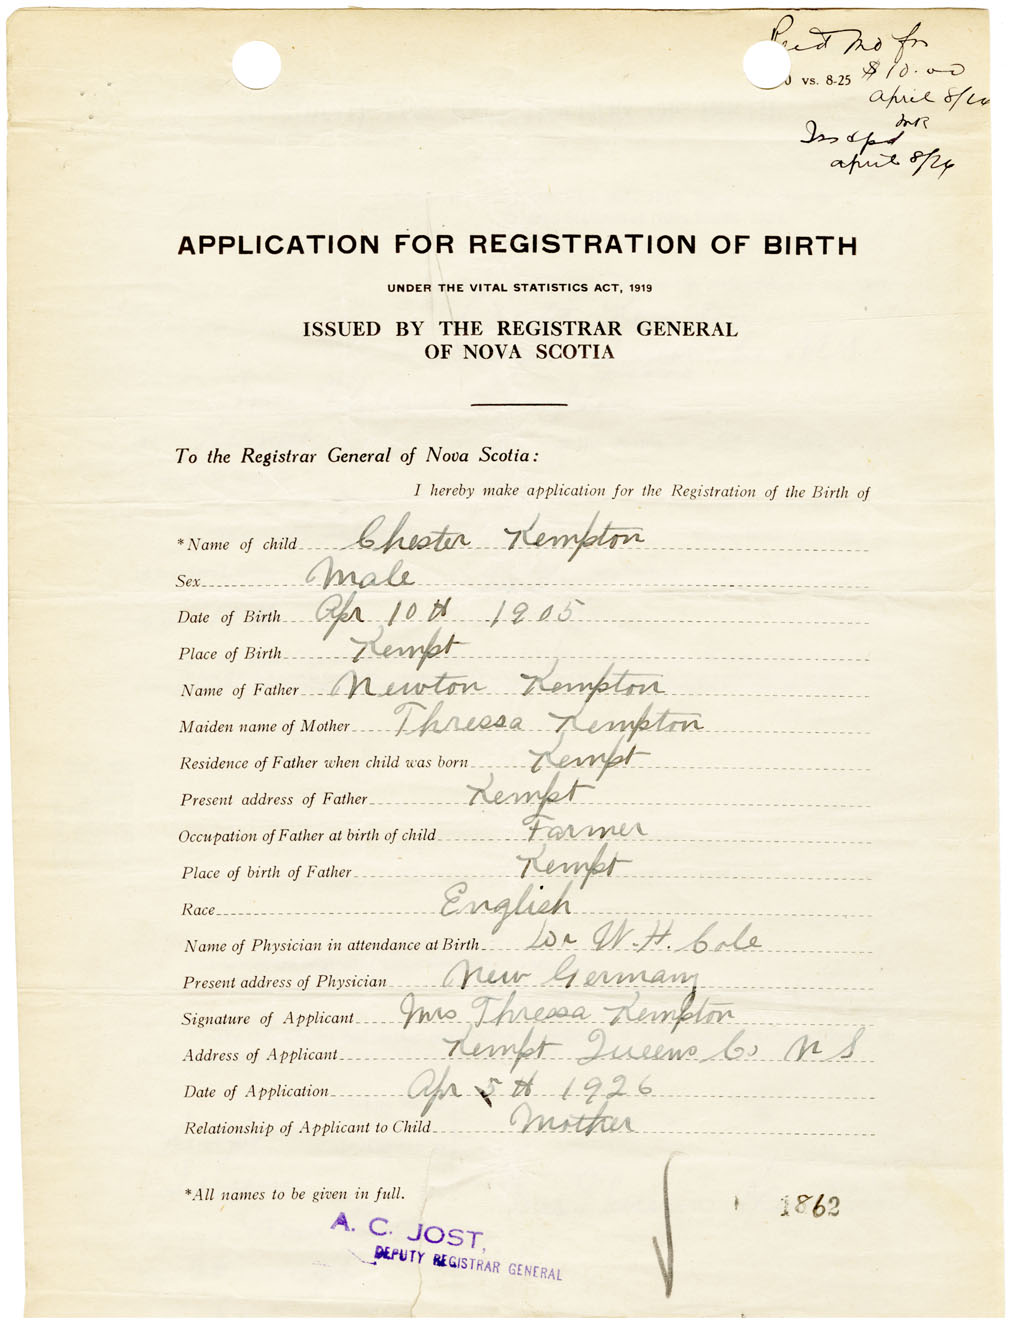 Rec'd MO for
0 vs. 8-25 $10.00
April 8/26
MR
Iss & pd
april 8/26
APPLICATION FOR REGISTRATION OF BIRTH
UNDER THE VITAL STATISTICS ACT, 1919
ISSUED BY THE REGISTRAR GENERAL
OF NOVA SCOTIA
To the Registrar General of Nova Scotia:
I hereby make application for the Registration of the Birth of
*Name of child Chester Kempton
Sex Male
Date of Birth Apr 10th 1905
Place of Birth Kempt
Name of Father Newton Kempton
Maiden name of Mother Thressa Kempton
Residence of Father when child was born Kempt
Present address of Father Kempt
Occupation of Father at birth of child Farmer
Place of birth of Father Kempt
Race English
Name of Physician in attendance at Birth Dr W. H. Cole
Present address of Physician New Germany
Signature of Applicant Mrs Thressa Kempton
Address of Applicant Kempt Queens Co N S
Date of Application Apr 5th 1926
Relationship of Applicant to Child Mother
*All names to be given in full.
1862
A. C. JOST,
DEPUTY REGISTRAR GENERAL